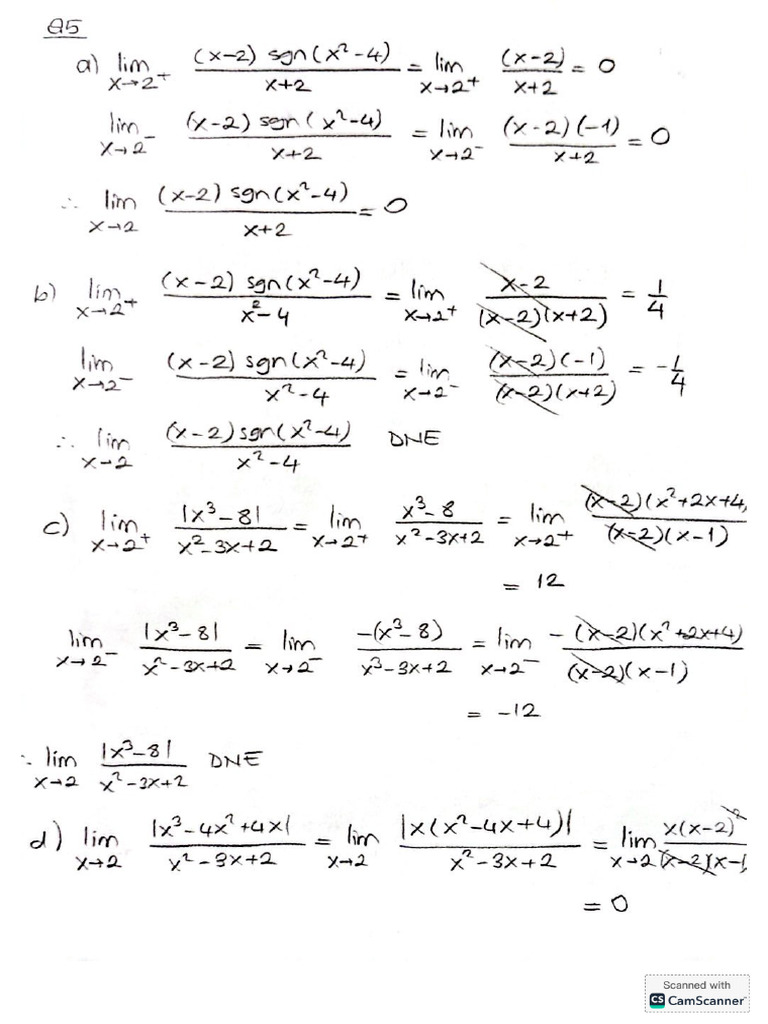 Q5
a) lim x→2⁺ (x-2) sgn(x²-4) / x+2 = lim x→2⁺ (x-2) / x+2 = 0
lim x→2⁻ (x-2) sgn(x²-4) / x+2 = lim x→2⁻ (x-2)(-1) / x+2 = 0
∴ lim x→2 (x-2) sgn(x²-4) / x+2 = 0
b) lim x→2⁺ (x-2) sgn(x²-4) / x²-4 = lim x→2⁺ x-2 / (x-2)(x+2) = 1/4
lim x→2⁻ (x-2) sgn(x²-4) / x²-4 = lim x→2⁻ (x-2)(-1) / (x-2)(x+2) = -1/4
∴ lim x→2 (x-2) sgn(x²-4) / x²-4 DNE
c) lim x→2⁺ |x³-8| / x²-3x+2 = lim x→2⁺ x³-8 / x²-3x+2 = lim x→2⁺ (x-2)(x²+2x+4, / (x-2)(x-1)
= 12
lim x→2⁻ |x³-8| / x²-3x+2 = lim x→2⁻ -(x³-8) / x³-3x+2 = lim x→2⁻ -(x-2)(x²+2x+4) / (x-2)(x-1)
= -12
∴ lim x→2 |x³-8| / x²-3x+2 DNE
d) lim x→2 |x³-4x²+4x| / x²-3x+2 = lim x→2 |x(x²-4x+4)| / x²-3x+2 = lim x→2 x(x-2)² / (x-2)(x-1
= 0
Scanned with
CS CamScanner